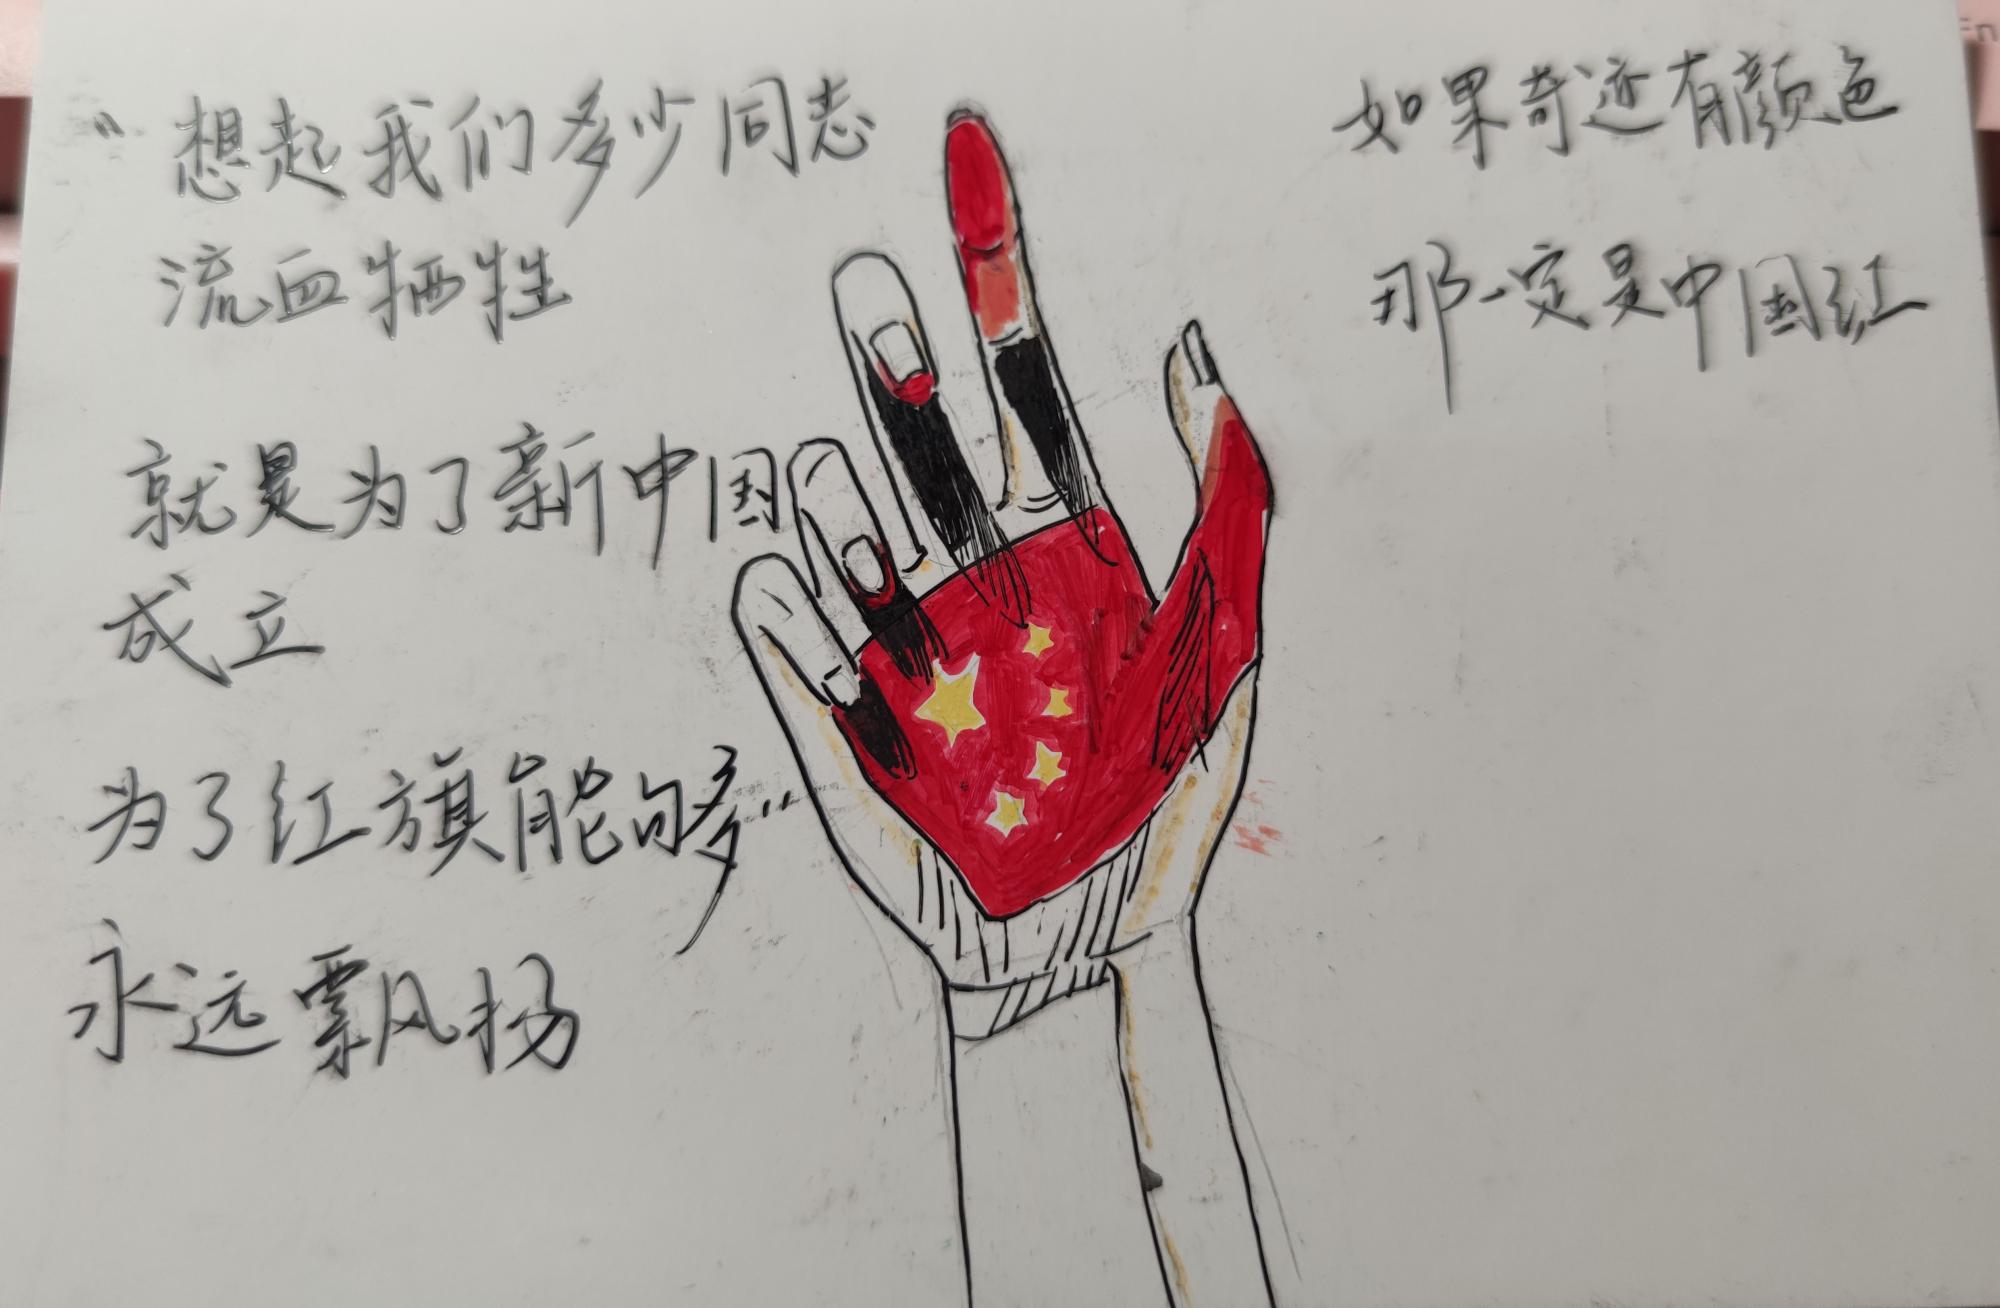 "想起我们多少同志
流血牺牲
就是为了新中国
成立
为了红旗能够"
永远飘扬
如果奇迹有颜色
那一定是中国红